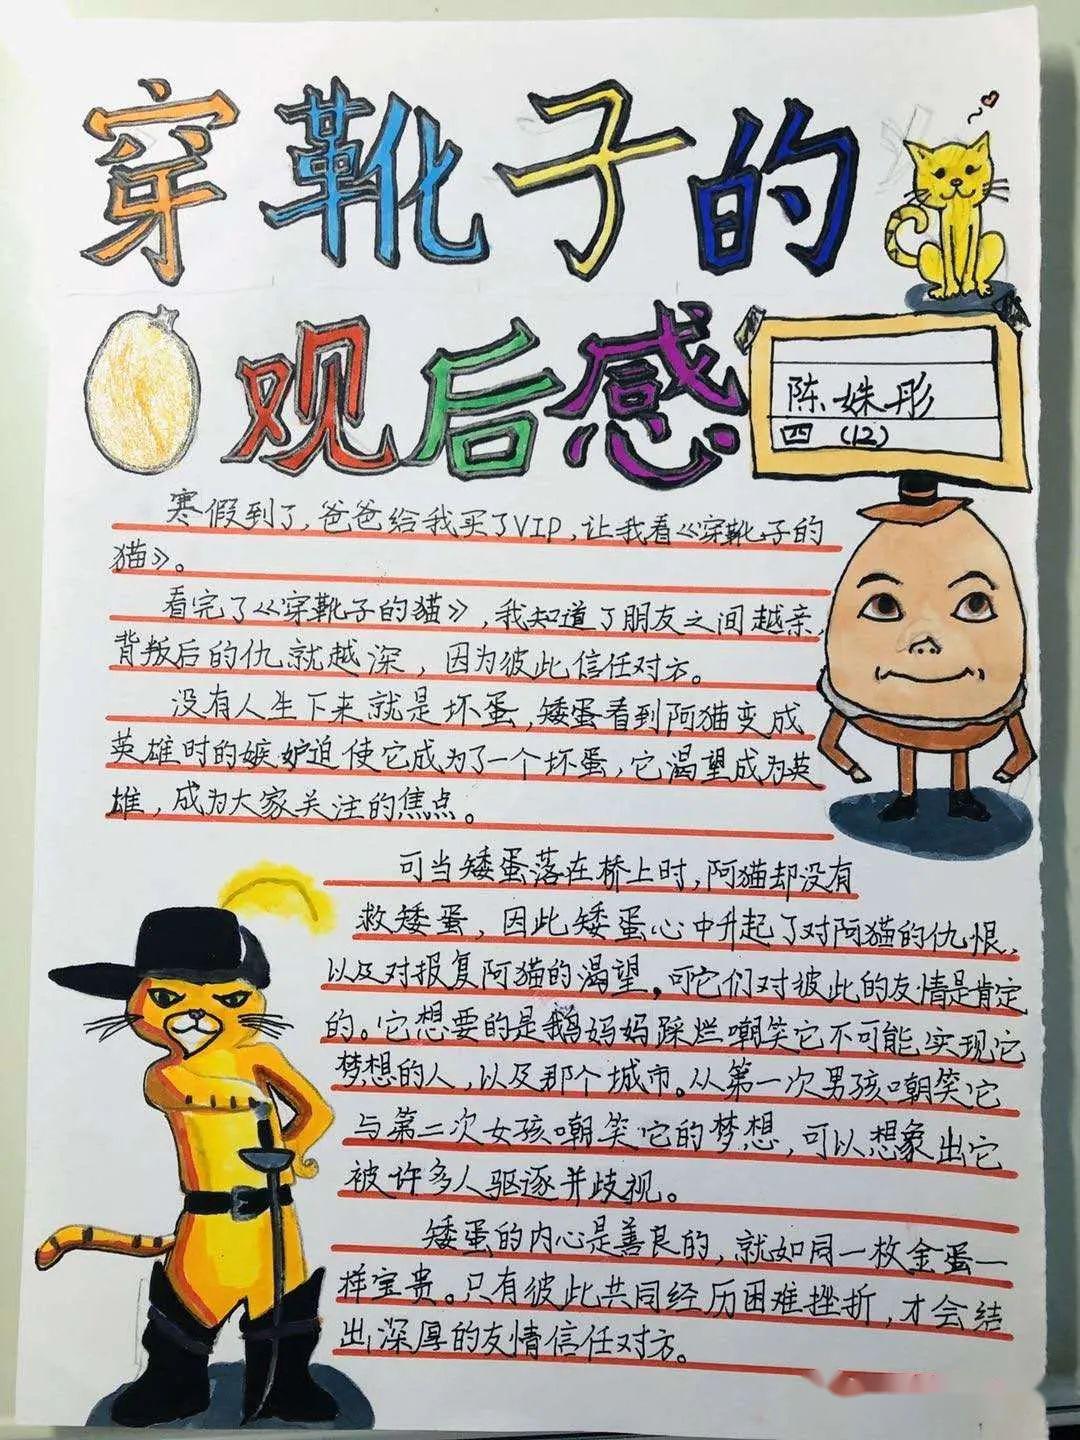 穿靴子的
观后感
陈姝彤
四(12)
寒假到了,爸爸给我买了VIP,让我看《穿靴子的
猫》。
看完了《穿靴子的猫》,我知道了朋友之间越亲,
背叛后的仇就越深,因为彼此信任对方。
没有人生下来就是坏蛋,矮蛋看到阿猫变成
英雄时的嫉妒迫使它成为了一个坏蛋,它渴望成为英
雄,成为大家关注的焦点。
可当矮蛋落在桥上时,阿猫却没有
救矮蛋,因此矮蛋心中升起了对阿猫的仇恨,
以及对报复阿猫的渴望,可它们对彼此的友情是肯定
的。它想要的是鹅妈妈踩烂嘲笑它不可能实现它
梦想的人,以及那个城市。从第一次男孩嘲笑它
与第二次女孩嘲笑它的梦想,可以想象出它
被许多人驱逐并歧视。
矮蛋的内心是善良的,就如同一枚金蛋一
样宝贵。只有彼此共同经历困难挫折,才会结
出深厚的友情信任对方。